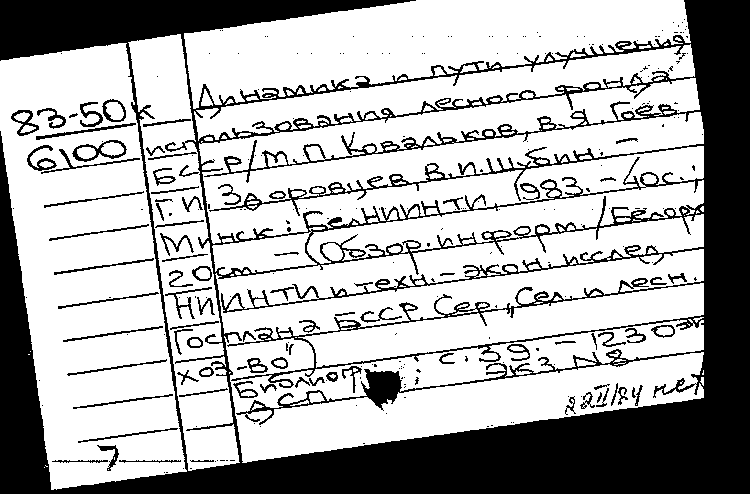 83-50к
6100
Динамика и пути улучшения
использования лесного фонда
БССР / М.П. Ковальков, В.Я. Гоев,
Г.И. Здоровцев, В.И. Шубин. –
Минск: БелНИИНТИ, 1983. – 40с.;
20см. – (Обзор. информ. / Белорус
НИИНТИ и техн.-экон. исслед.
Госплана БССР. Сер. „Сел. и лесн.
хоз-во")
Библиогр.: с. 39. – 1230 эк
ДСП ЭКЗ. N8
22II/84 нет
7